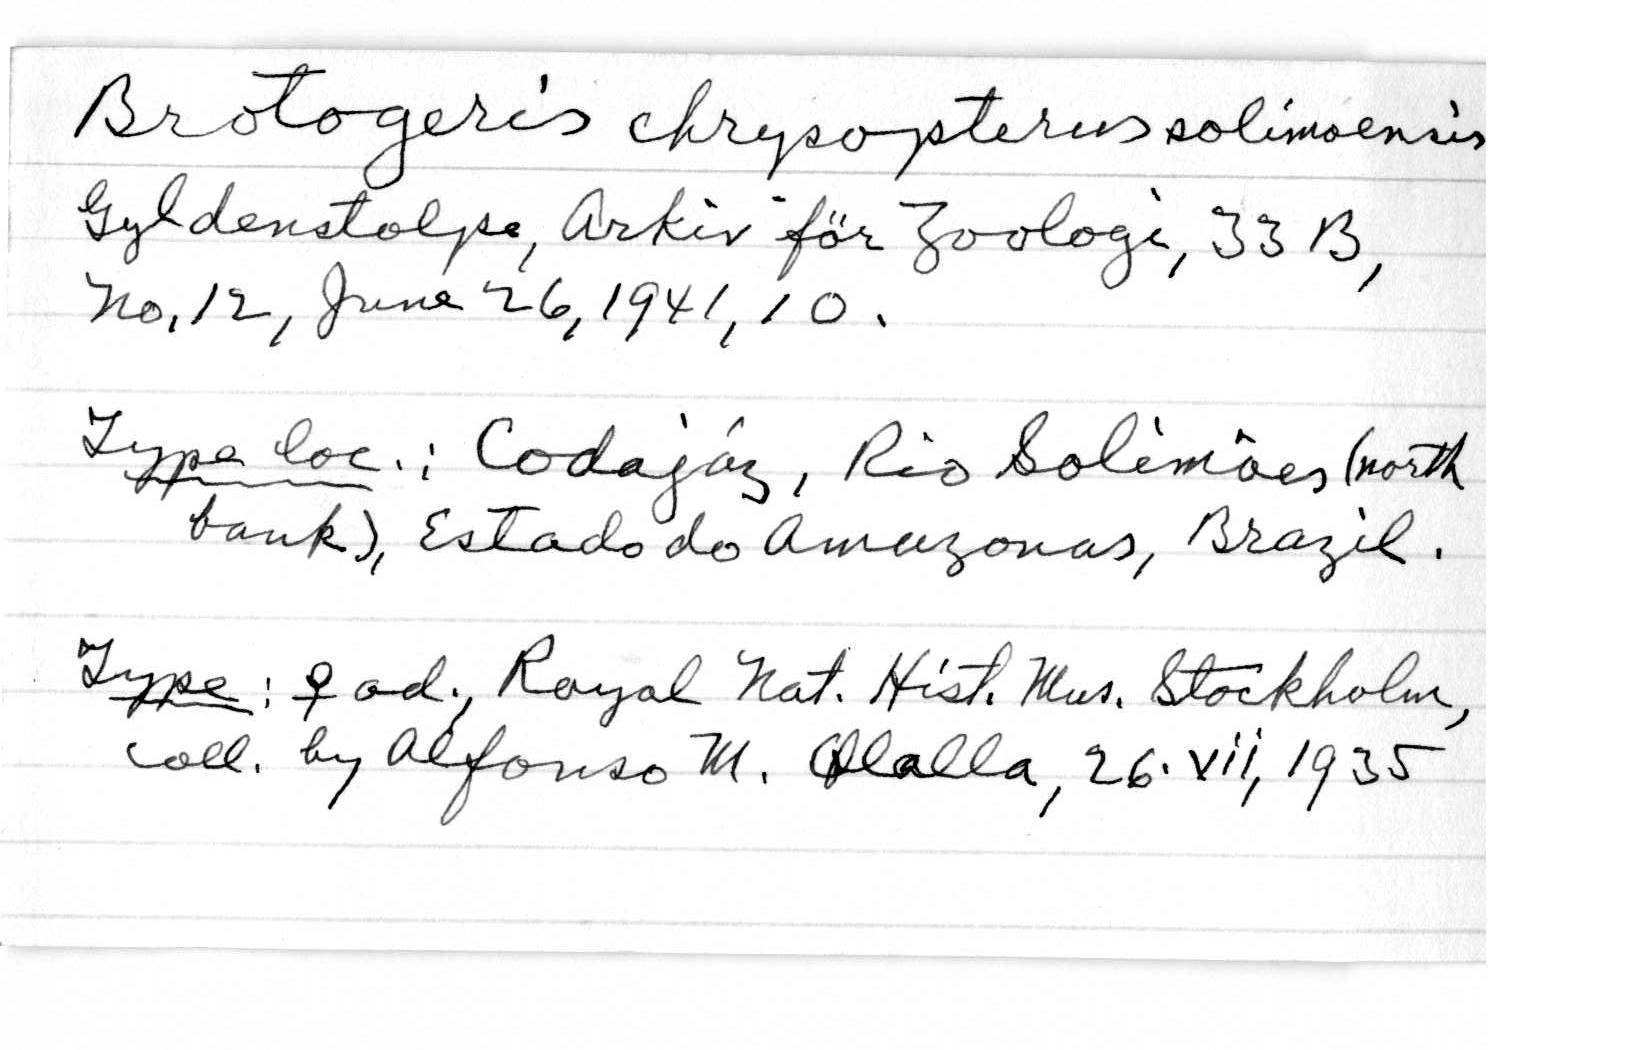 Brotogeris chrysopterus solimoensis
Gyldenstolpe, Arkiv för Zoologi, 33 B,
No. 12, June 26, 1941, 10.
Type loc.: Codajáz, Rio Solimões (north
bank), Estado do Amazonas, Brazil.
Type: ♀ ad., Royal Nat. Hist. Mus. Stockholm,
coll. by Alfonso M. Olalla, 26. vii, 1935